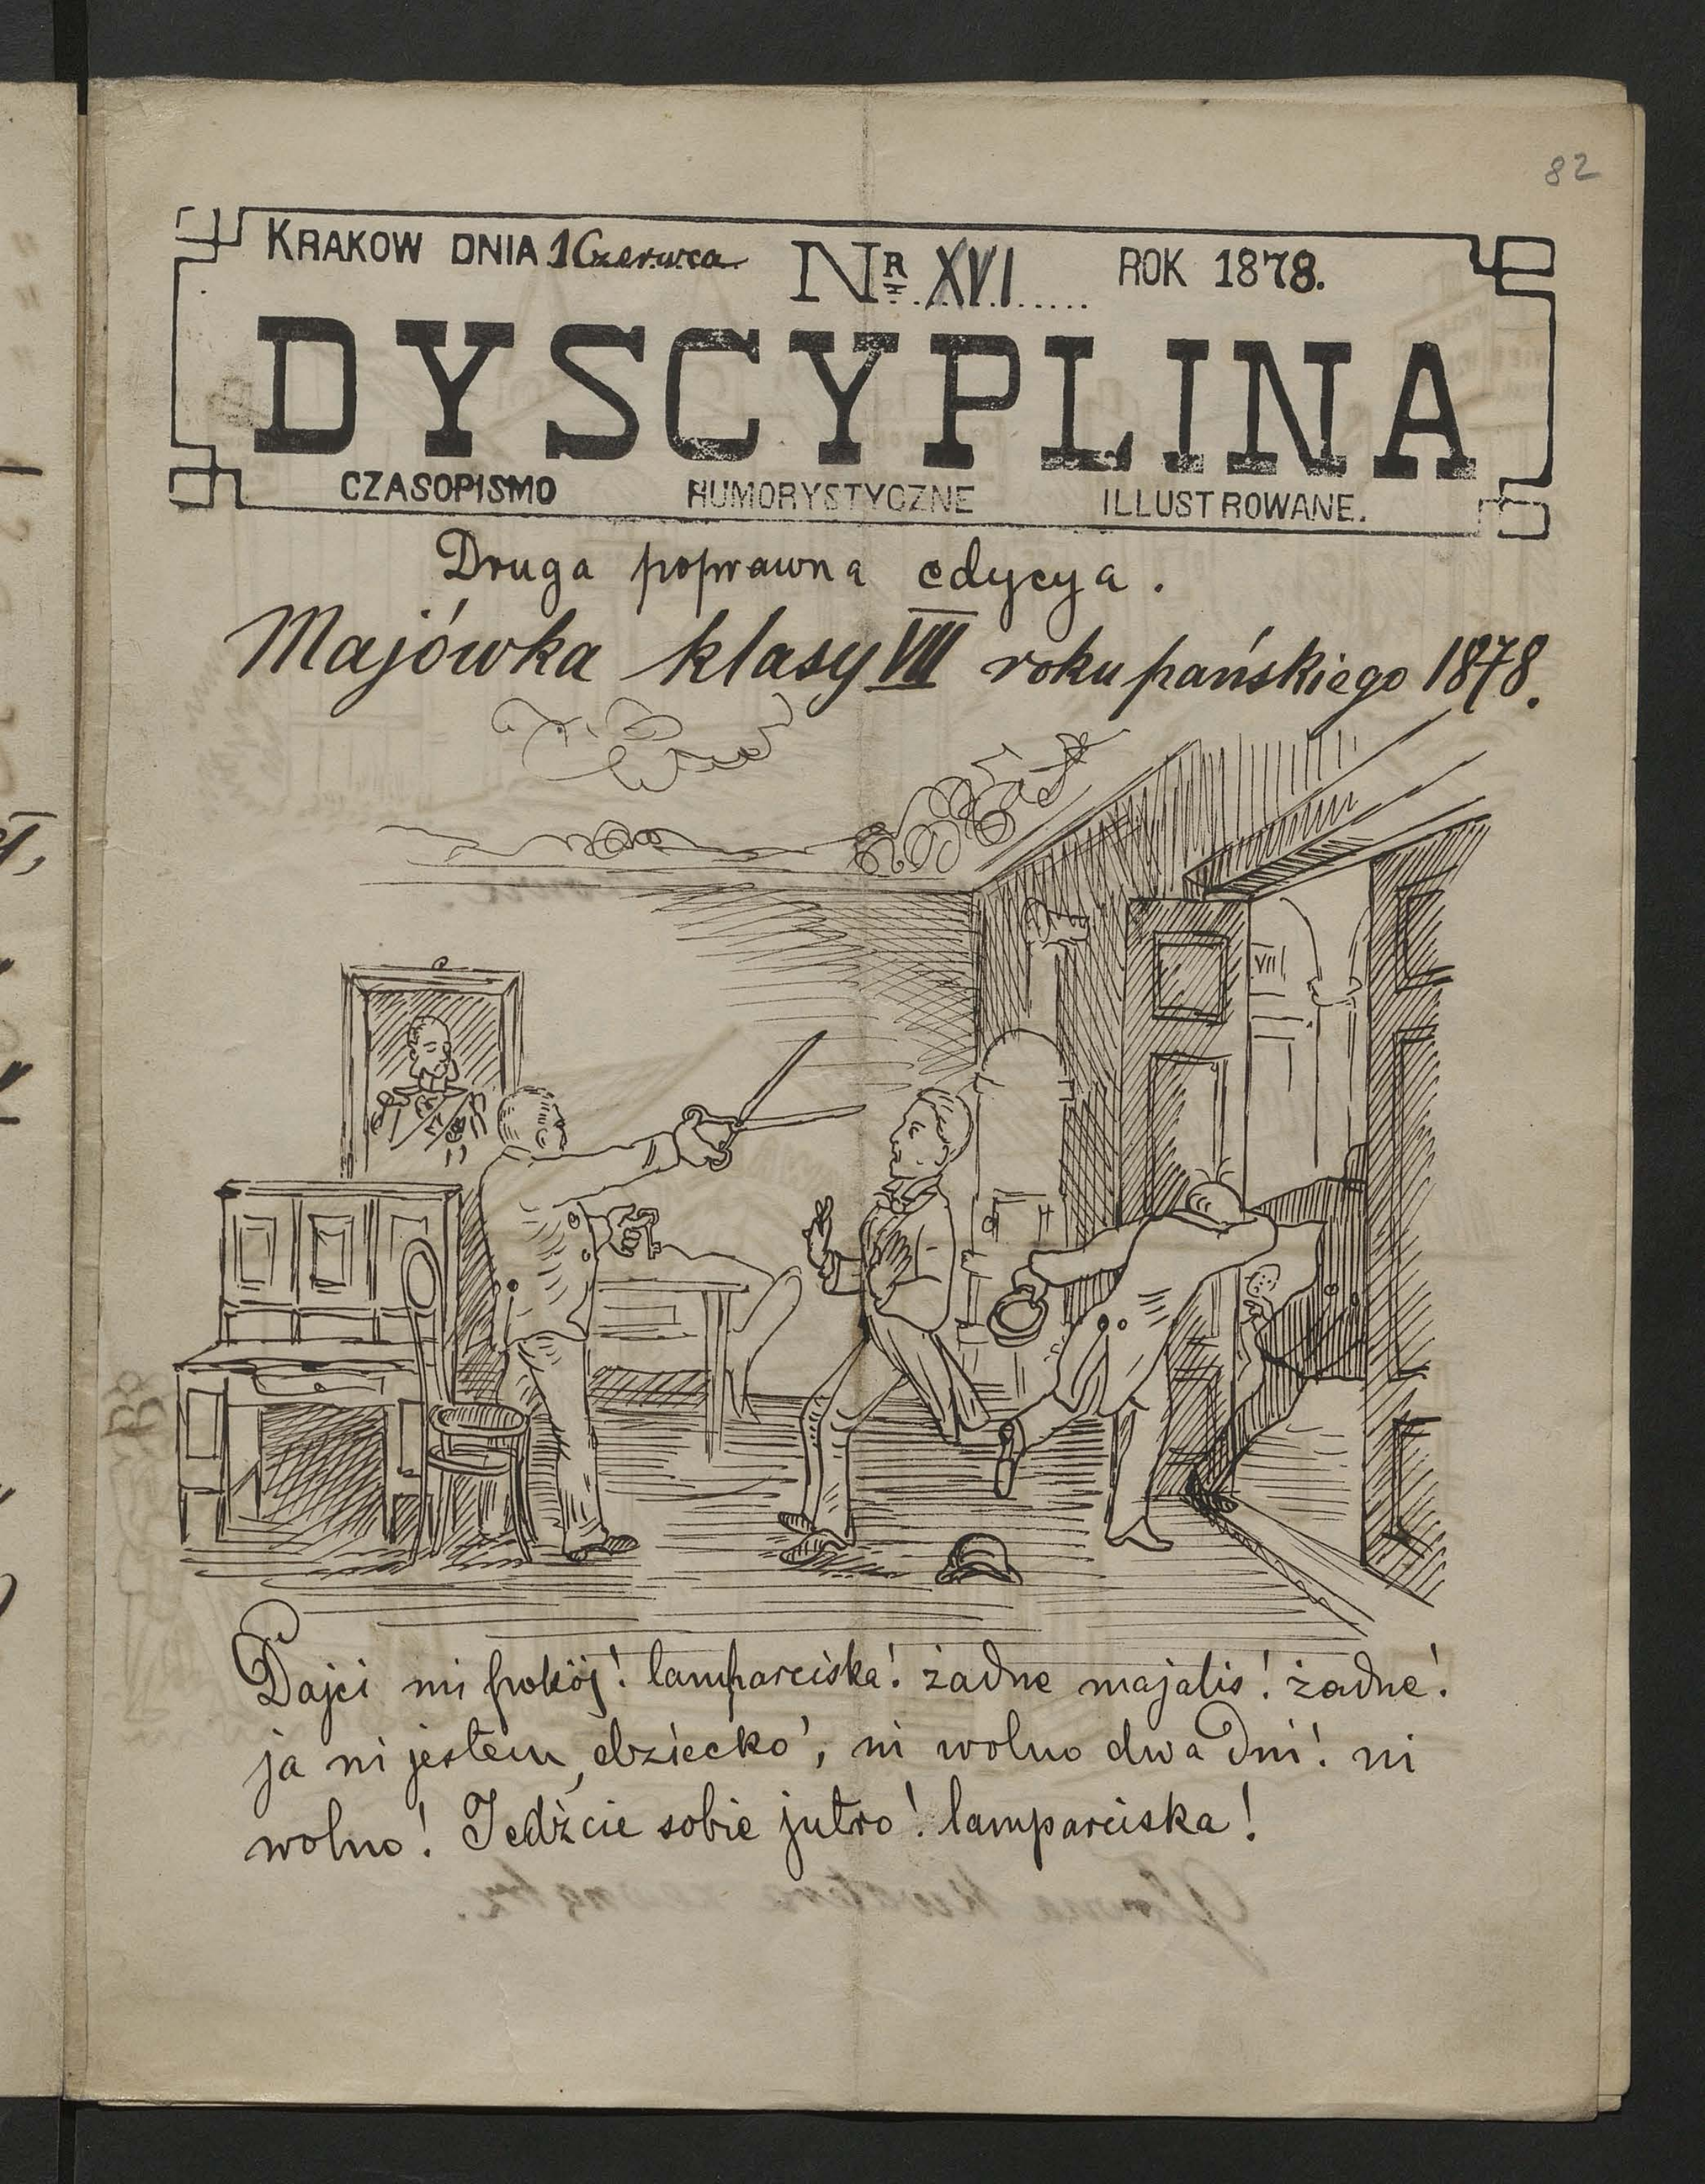 82
KRAKOW DNIA 1 Czerwca NR XVI ROK 1878.
DYSCYPLINA
CZASOPISMO HUMORYSTYCZNE ILLUSTROWANE.
Druga poprawna edycya.
Majówka klasy VII roku pańskiego 1878.
VII
Dajci mi pokój! lamparciska! żadne majalis! żadne!
ja ni jestem dziecko, ni wolno dwa dni! ni
wolno! Jedźcie sobie jutro! lamparciska!